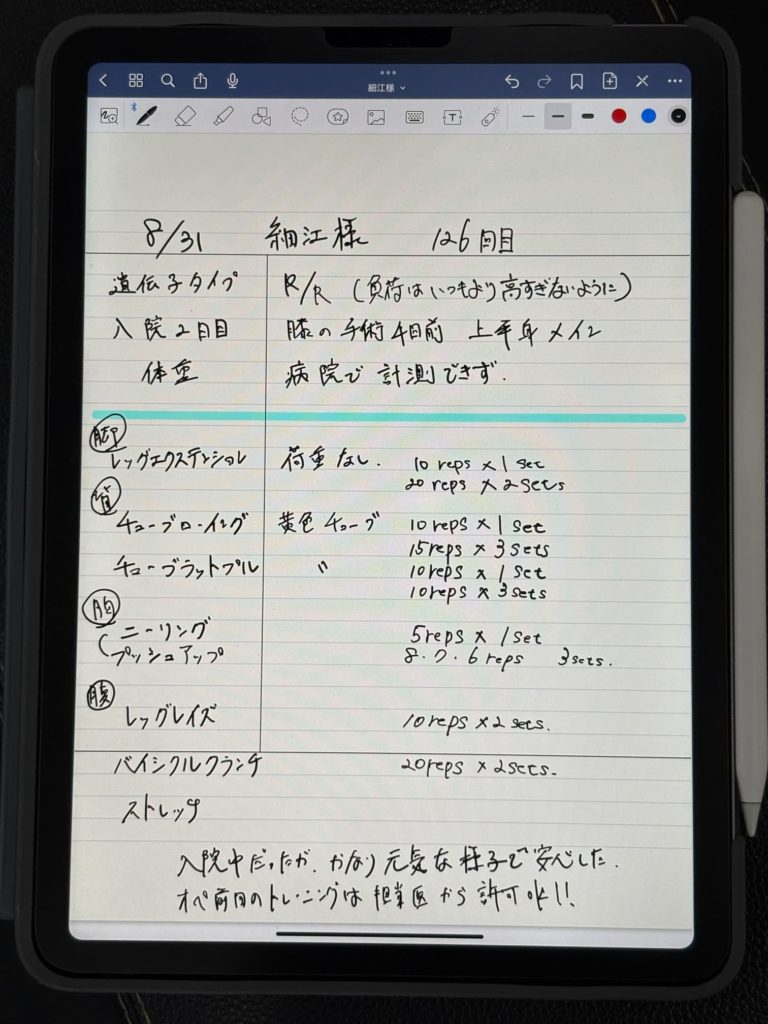 細江様
T
8/31 細江様 126回目
遺伝子タイプ R/R (負荷はいつもより高すぎないように)
入院2日目 膝の手術4日前 上半身メイン
体重 病院で計測できず.
脚
レッグエクステンション 荷重なし. 10 reps × 1 set
20 reps × 2 sets
背
チューブローイング 黄色チューブ 10 reps × 1 set
15 reps × 3 sets
チューブラットプル 〃 10 reps × 1 set
10 reps × 3 sets
胸
ニーリング 5 reps × 1 set
プッシュアップ 8.7.6 reps 3 sets.
腹
レッグレイズ 10 reps × 2 sets.
バイシクルクランチ 20 reps × 2 sets.
ストレッチ
入院中だったが、かなり元気な様子で安心した.
オペ前日のトレーニングは担当医から許可ok!!